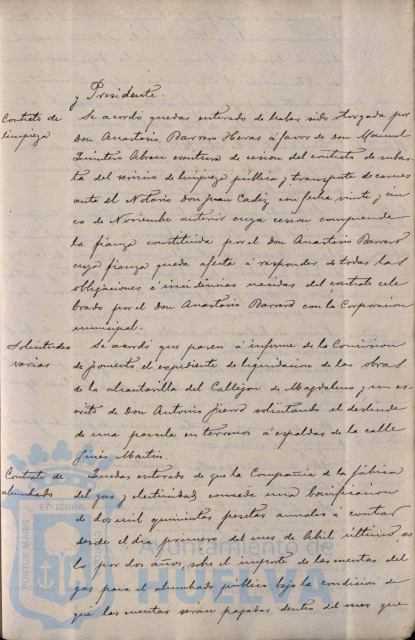 y Presidente.
Contrato de
limpieza
Se acordó quedar enterado de haber sido otorgada por
Don Anastasio Barrero Heras á favor de Don Manuel
Quintero Abreu escritura de cesion del contrato de subas-
ta del servicio de limpieza pública y transporte de carnes
ante el Notario Don Juan Cádiz con fecha veinte y cin-
co de Noviembre anterior cuya cesion comprende
la fianza constituida por el Don Anastasio Barrero
cuya fianza queda afecta á responder de todas las
obligaciones é incidencias nacidas del contrato cele-
brado por el Don Anastasio Barrero con la Corporacion
municipal.
Solicitudes
varias
Se acordó que pasen á informe de la Comision
de fomento el expediente de liquidacion de las obras
de la alcantarilla del Callejon de Magdalena y un es-
crito de Don Antonio solicitando el deslinde
de una parcela en terrenos á espaldas de la calle
Ginés Martin.
Contrato de
alumbrado
Quedar enterado de que la Compañia de la fábrica
del gas y eletricidad, concede una bonificacion
de dos mil quinientas pesetas anuales á contar
desde el dia primero del mes de Abril último y so-
lo por dos años, sobre el importe de las cuentas del
gas para el alumbrado público bajo la condicion de
que las cuentas serán pagadas dentro del mes que
PORTUS MARIS ET TERRÆ
Ayuntamiento de
HUELVA